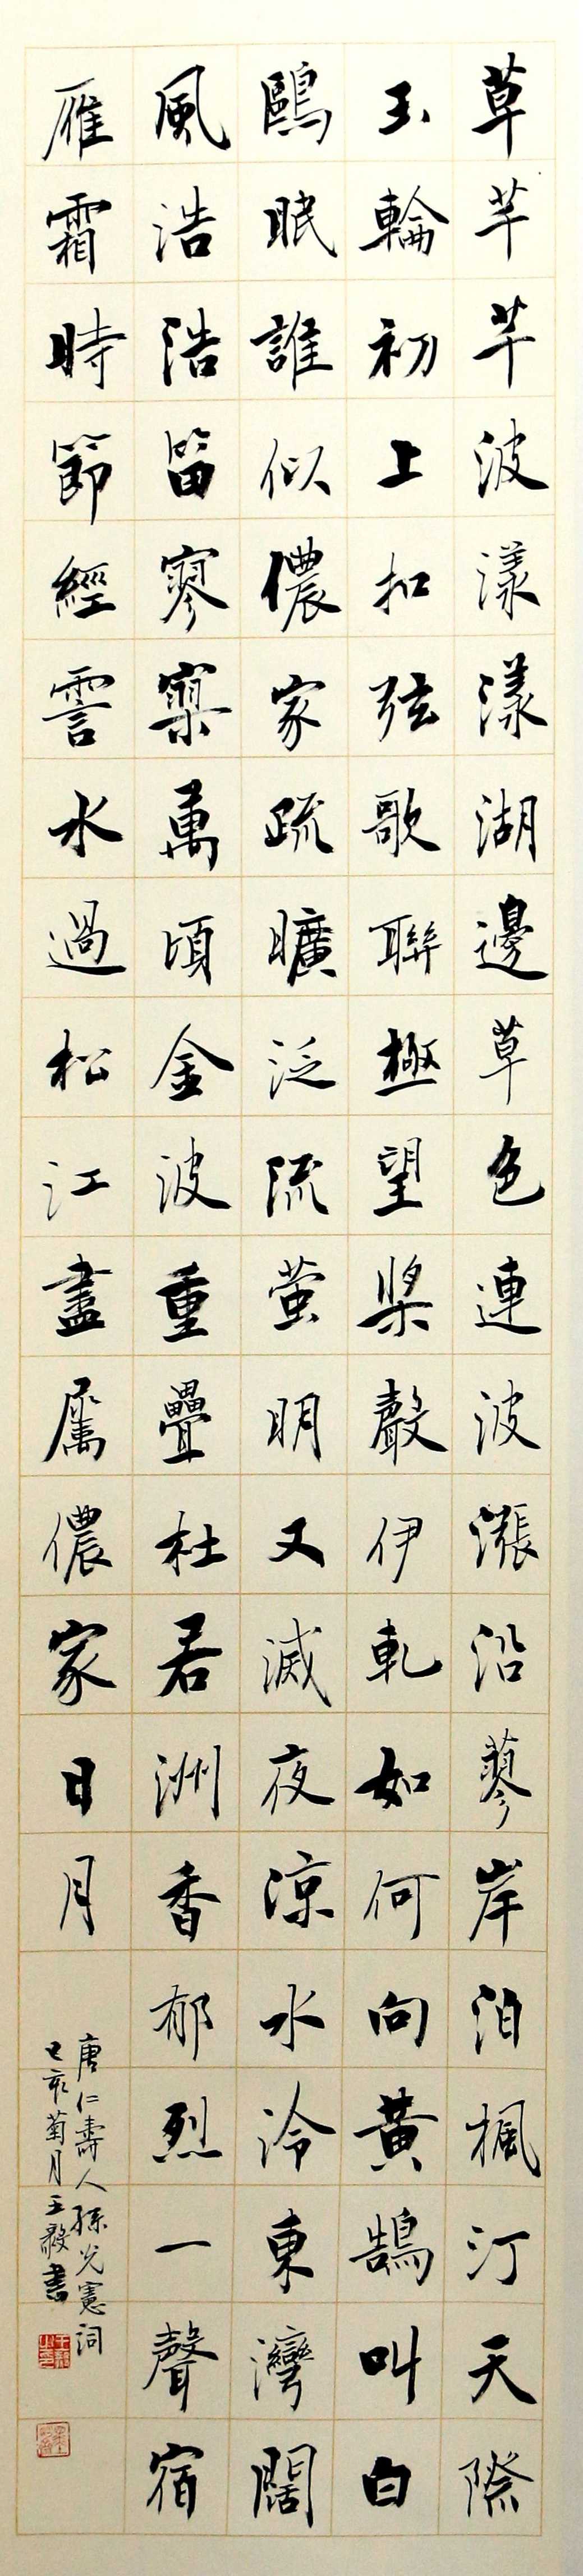 草芊芊波漾漾湖邊草色連波漲沿蓼岸泊楓汀天際
玉輪初上扣弦歌聯極望槳聲伊軋如何向黃鵠叫白
鷗眠誰似儂家疏曠泛流螢明又滅夜涼水冷東灣闊
風浩浩笛寥寥萬頃金波重疊杜若洲香郁烈一聲宿
雁霜時節經霅水過松江盡屬儂家日月
唐仁壽人孫光憲詞
己亥菊月王毅書